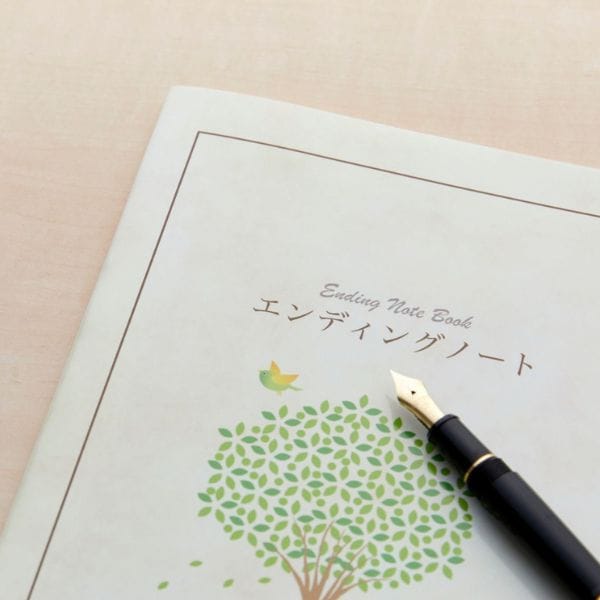 Ending Note Book
エンディングノート